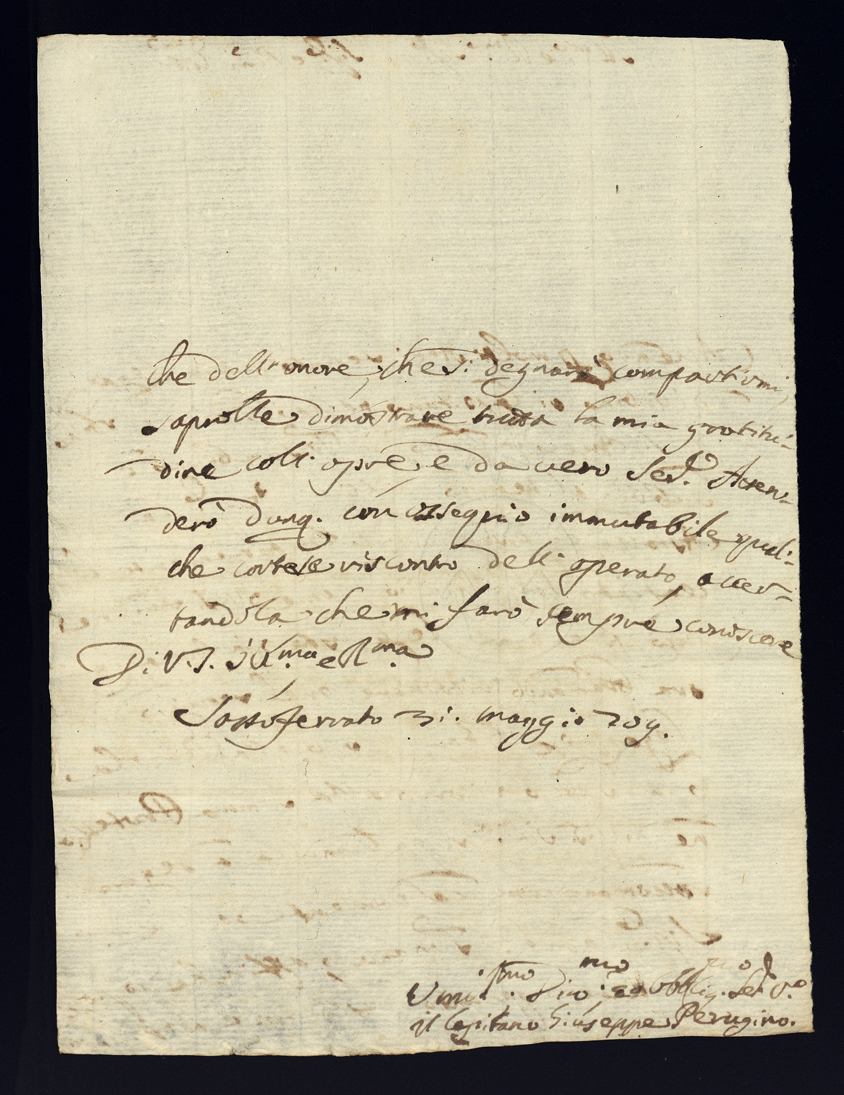 che dell'onore, che si degnarà compartirmi,
saprolle dimostrare tutta la mia gratitu-
dine coll'opre, e da vero Ser.e Atten-
derò dunq. con ossequio immutabile qual-
che cortese riscontro dell'operato, accer-
tandola che mi farò sempre conoscere
Di V.S. Ill.ma e R.ma
Sassoferrato 31. maggio 709.
Umil.mo Dev.mo ed Obblig.mo Ser.e V.o
il Capitano Giuseppe Perugino.